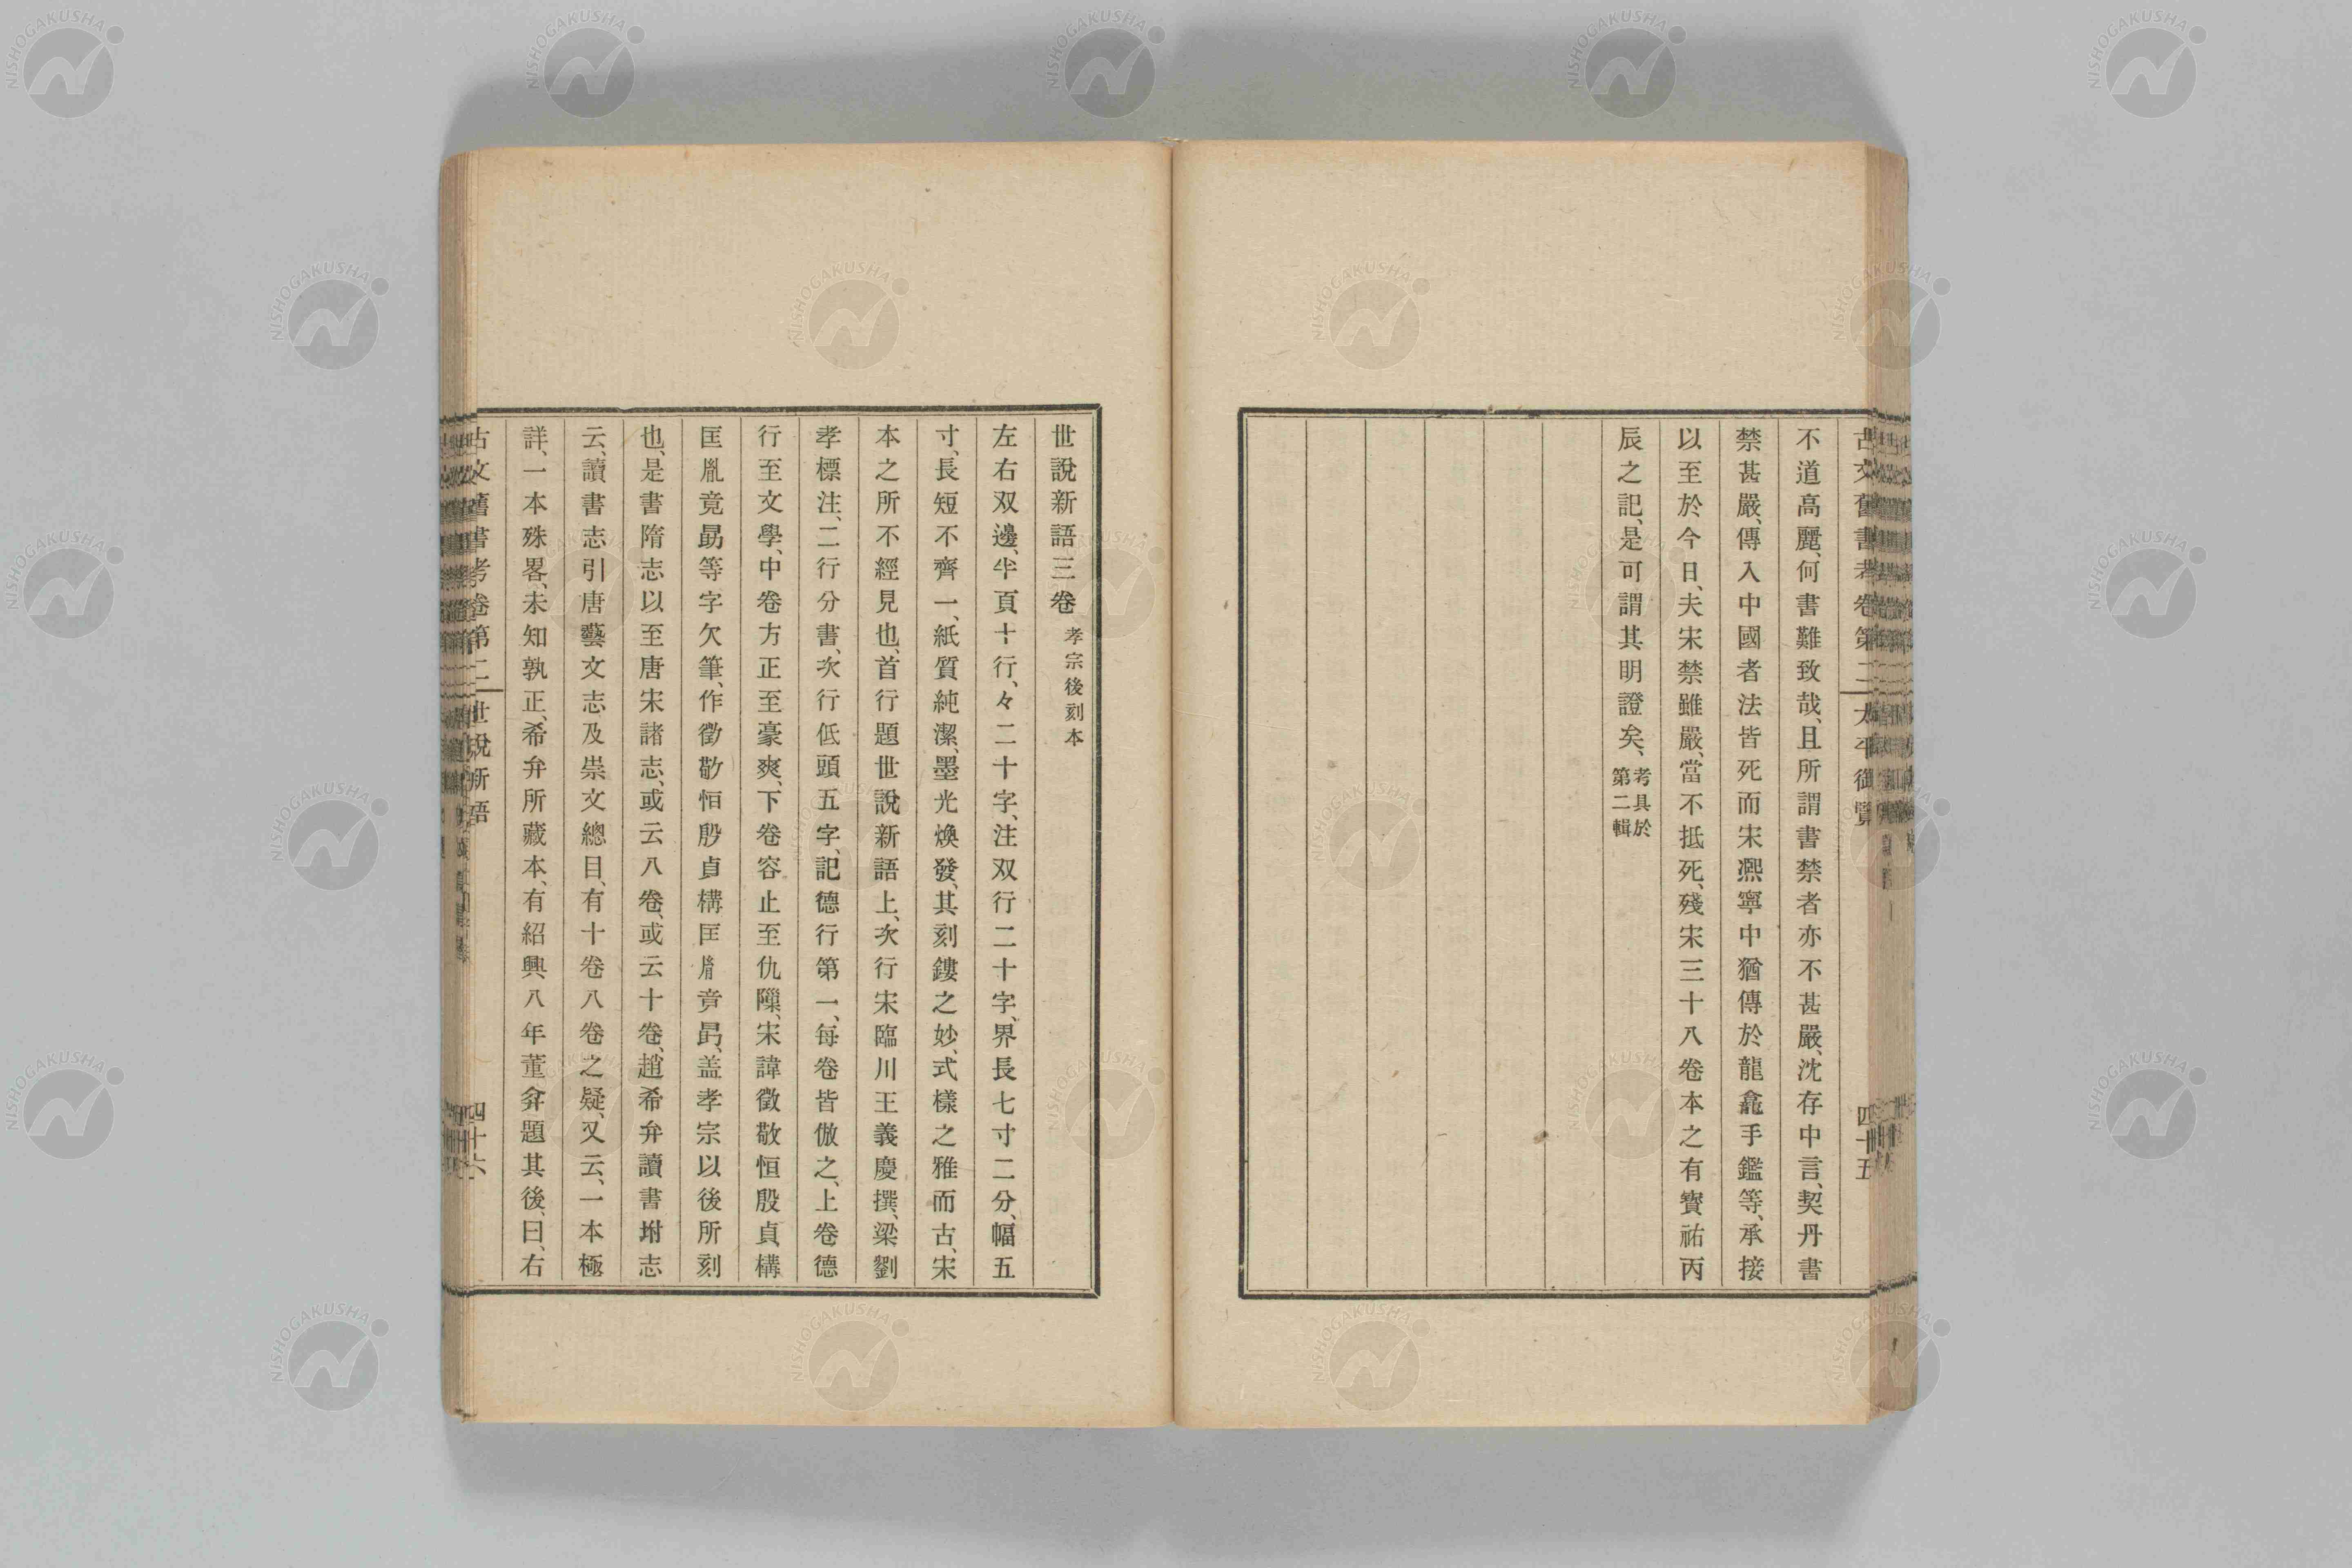 古文舊書考卷第二 太平御覽 四十五
不道高麗、何書難致哉、且所謂書禁者亦不甚嚴、沈存中言、契丹書
禁甚嚴、傳入中國者法皆死而宋凞寧中猶傳於龍龕手鑑等、承接
以至於今日、夫宋禁雖嚴、當不抵死、殘宋三十八卷本之有寳祐丙
辰之記、是可謂其明證矣、考具於第二輯
世說新語三卷 孝宗後刻本
左右双邊、半頁十行、々二十字、注双行二十字、界長七寸二分、幅五
寸、長短不齊一、紙質純潔、墨光煥發、其刻鏤之妙、式樣之雅而古、宋
本之所不經見也、首行題世說新語上、次行宋臨川王義慶撰、梁劉
孝標注、二行分書、次行低頭五字、記德行第一、每卷皆倣之、上卷德
行至文學、中卷方正至豪爽、下卷容止至仇隟、宋諱徵敬恒殷貞、構
匡胤竟勗等字欠筆、作
也、是書隋志以至唐宋諸志、或云八卷、或云十卷、趙希弁讀書坿志
云、讀書志引唐藝文志及崇文總目、有十卷八卷之疑、又云、一本極
詳、一本殊畧、未知孰正、希弁所藏本、有紹興八年董弅題其後、曰、右
古文舊書考卷第二 世說新語 四十六
NISHOGAKUSHA